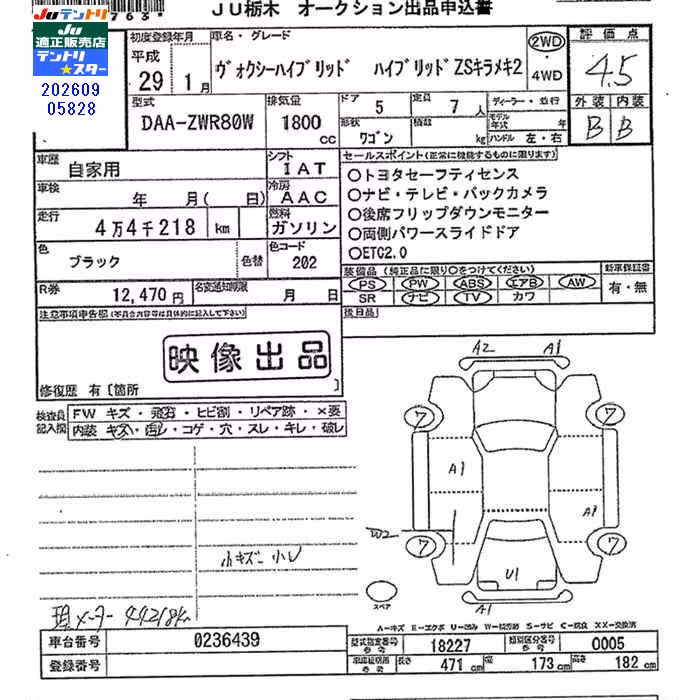 JU栃木 オークション出品申込書
JUテントリ
JU
適正販売店
テントリ
スター
202609
05828
初度登録年月
平成
29 1月
車名・グレード
ヴォクシーハイブリッド ハイブリッドZSキラメキ2
2WD
・
4WD
評価点
4.5
外装 内装
B B
型式
DAA-ZWR80W
排気量
1800 cc
ドア
5
定員
7 人
形状
ワゴン
積載
kg
ディーラー・並行
モデル年式 年
ハンドル 左・右
車歴
自家用
シフト
IAT
車検
年 月( 日)
冷房
AAC
走行
4万4千218 km
燃料
ガソリン
色
ブラック
色替
色コード
202
R券
12,470円
名変通知期限
月 日
セールスポイント(正常に機能するものに限ります)
○トヨタセーフティセンス
○ナビ・テレビ・バックカメラ
○後席フリップダウンモニター
○両側パワースライドドア
○ETC2.0
装備品(純正品に限り○をつけてください)
PS PW ABS エアB AW
SR ナビ TV カワ
新車保証書
有・無
後日品
注意事項申告欄(不具合内容等は具体的に記入して下さい)
映像出品
修復歴 有〔箇所 〕
検査員記入欄
FW キズ・飛石・ヒビ割・リペア跡・×要
内装 キズ・凹レ・コゲ・穴・スレ・キレ・破レ
小キズ 小レ
現メーター 44218km
A2 A1
ワ ワ
A1
A1
A1
W2
ワ ワ
U1
A1
スペア
A-キズ E-エクボ U-凹み W-補修跡 S-サビ C-腐食 XX-交換済
車台番号
0236439
登録番号
型式指定番号 参考
18227
類別区分番号 参考
0005
車庫証明用 参考
長さ 471cm 幅 173cm 高さ 182cm